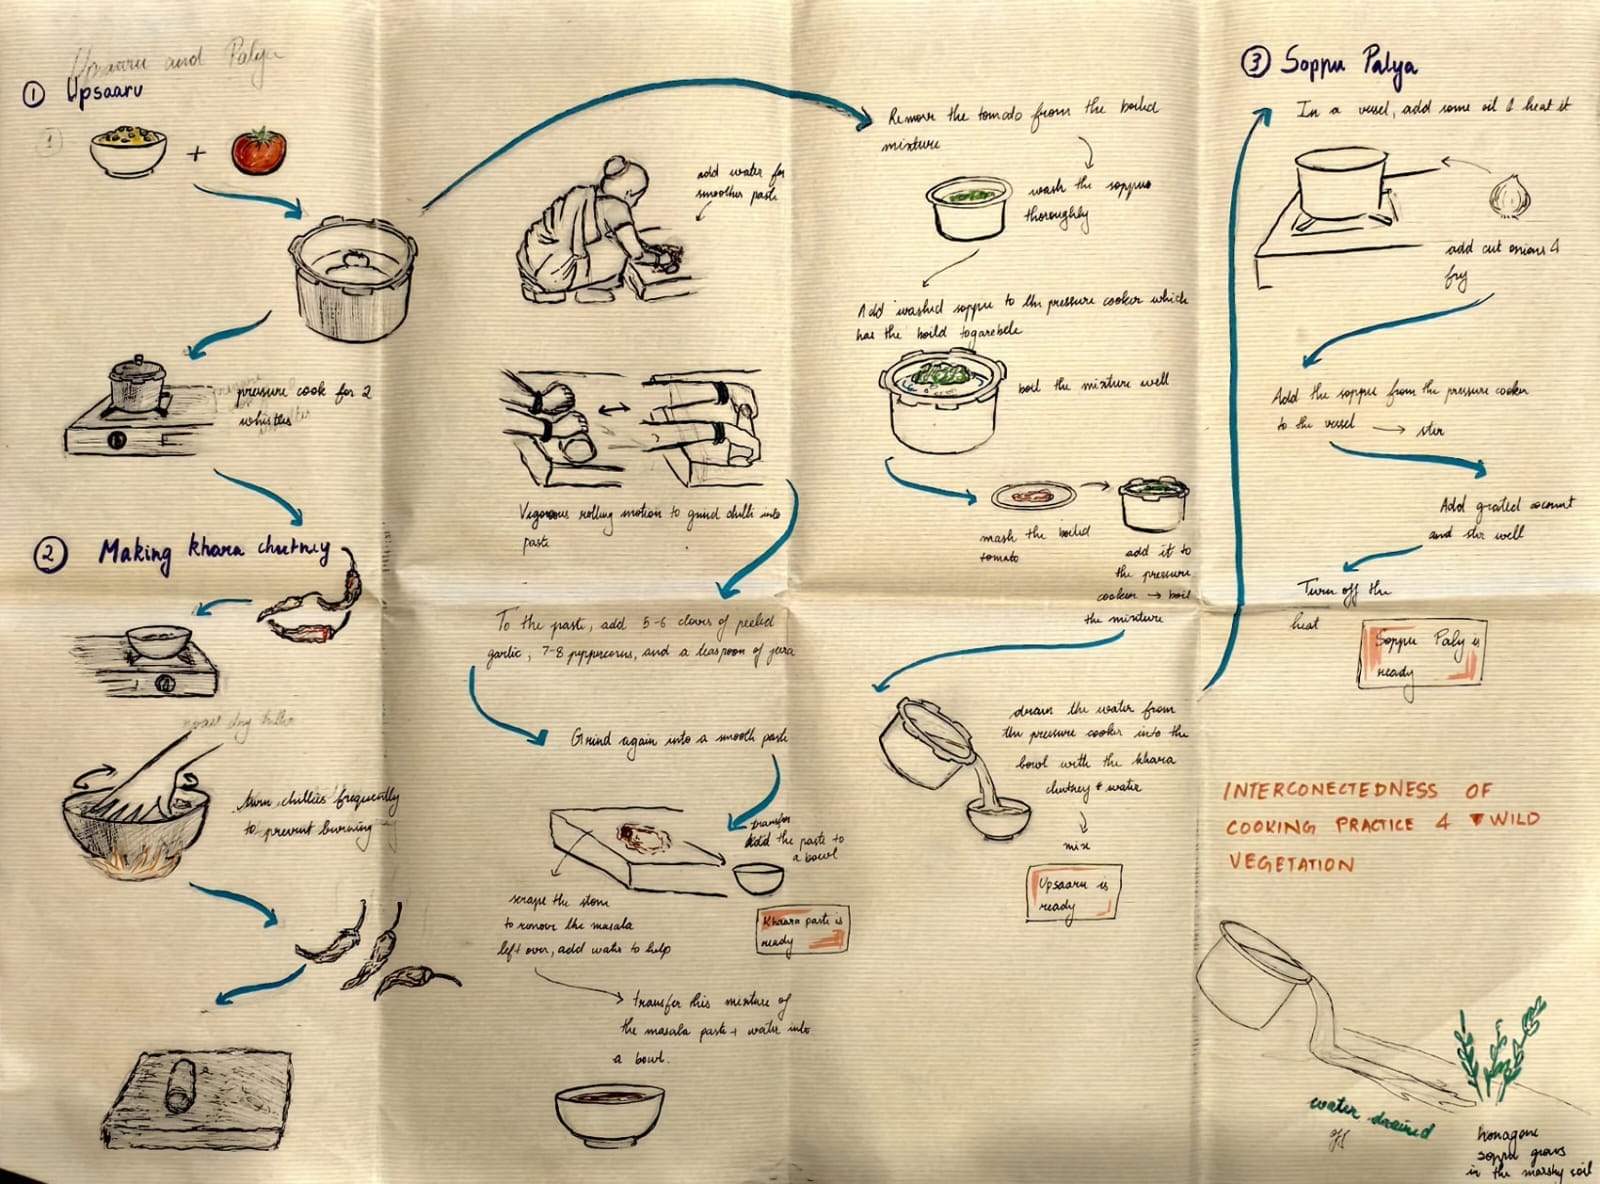 Upsaaru and Palya
① Upsaaru
1
pressure cook for 2
whistles
② Making khara chutney
roast dry
turn chillies frequently
to prevent burning
add water for
smoother paste
Vigorous rolling motion to grind chilli into
paste
To the paste, add 5-6 cloves of peeled
garlic, 7-8 peppercorns, and a teaspoon of jeera
Grind again into a smooth paste
transfer
add the paste to
a bowl
scrape the stone
to remove the masala
left over, add water to help
Khaara paste is
ready
transfer this mixture of
the masala paste + water into
a bowl.
Remove the tomato from the boiled
mixture
wash the soppu
thoroughly
Add washed soppu to the pressure cooker which
has the boild togarebele
boil the mixture well
mash the boiled
tomato
add it to
the pressure
cooker → boil
the mixture
drain the water from
the pressure cooker into the
bowl with the khara
chutney + water
mix
Upsaaru is
ready
③ Soppu Palya
In a vessel, add some oil & heat it
add cut onions &
fry
Add the soppu from the pressure cooker
to the vessel → stir
Add grated coconut
and stir well
Turn off the
heat
Soppu Paly is
ready
INTERCONECTEDNESS OF
COOKING PRACTICE & WILD
VEGETATION
water drained
off
honagone
soppu grows
in the marshy soil